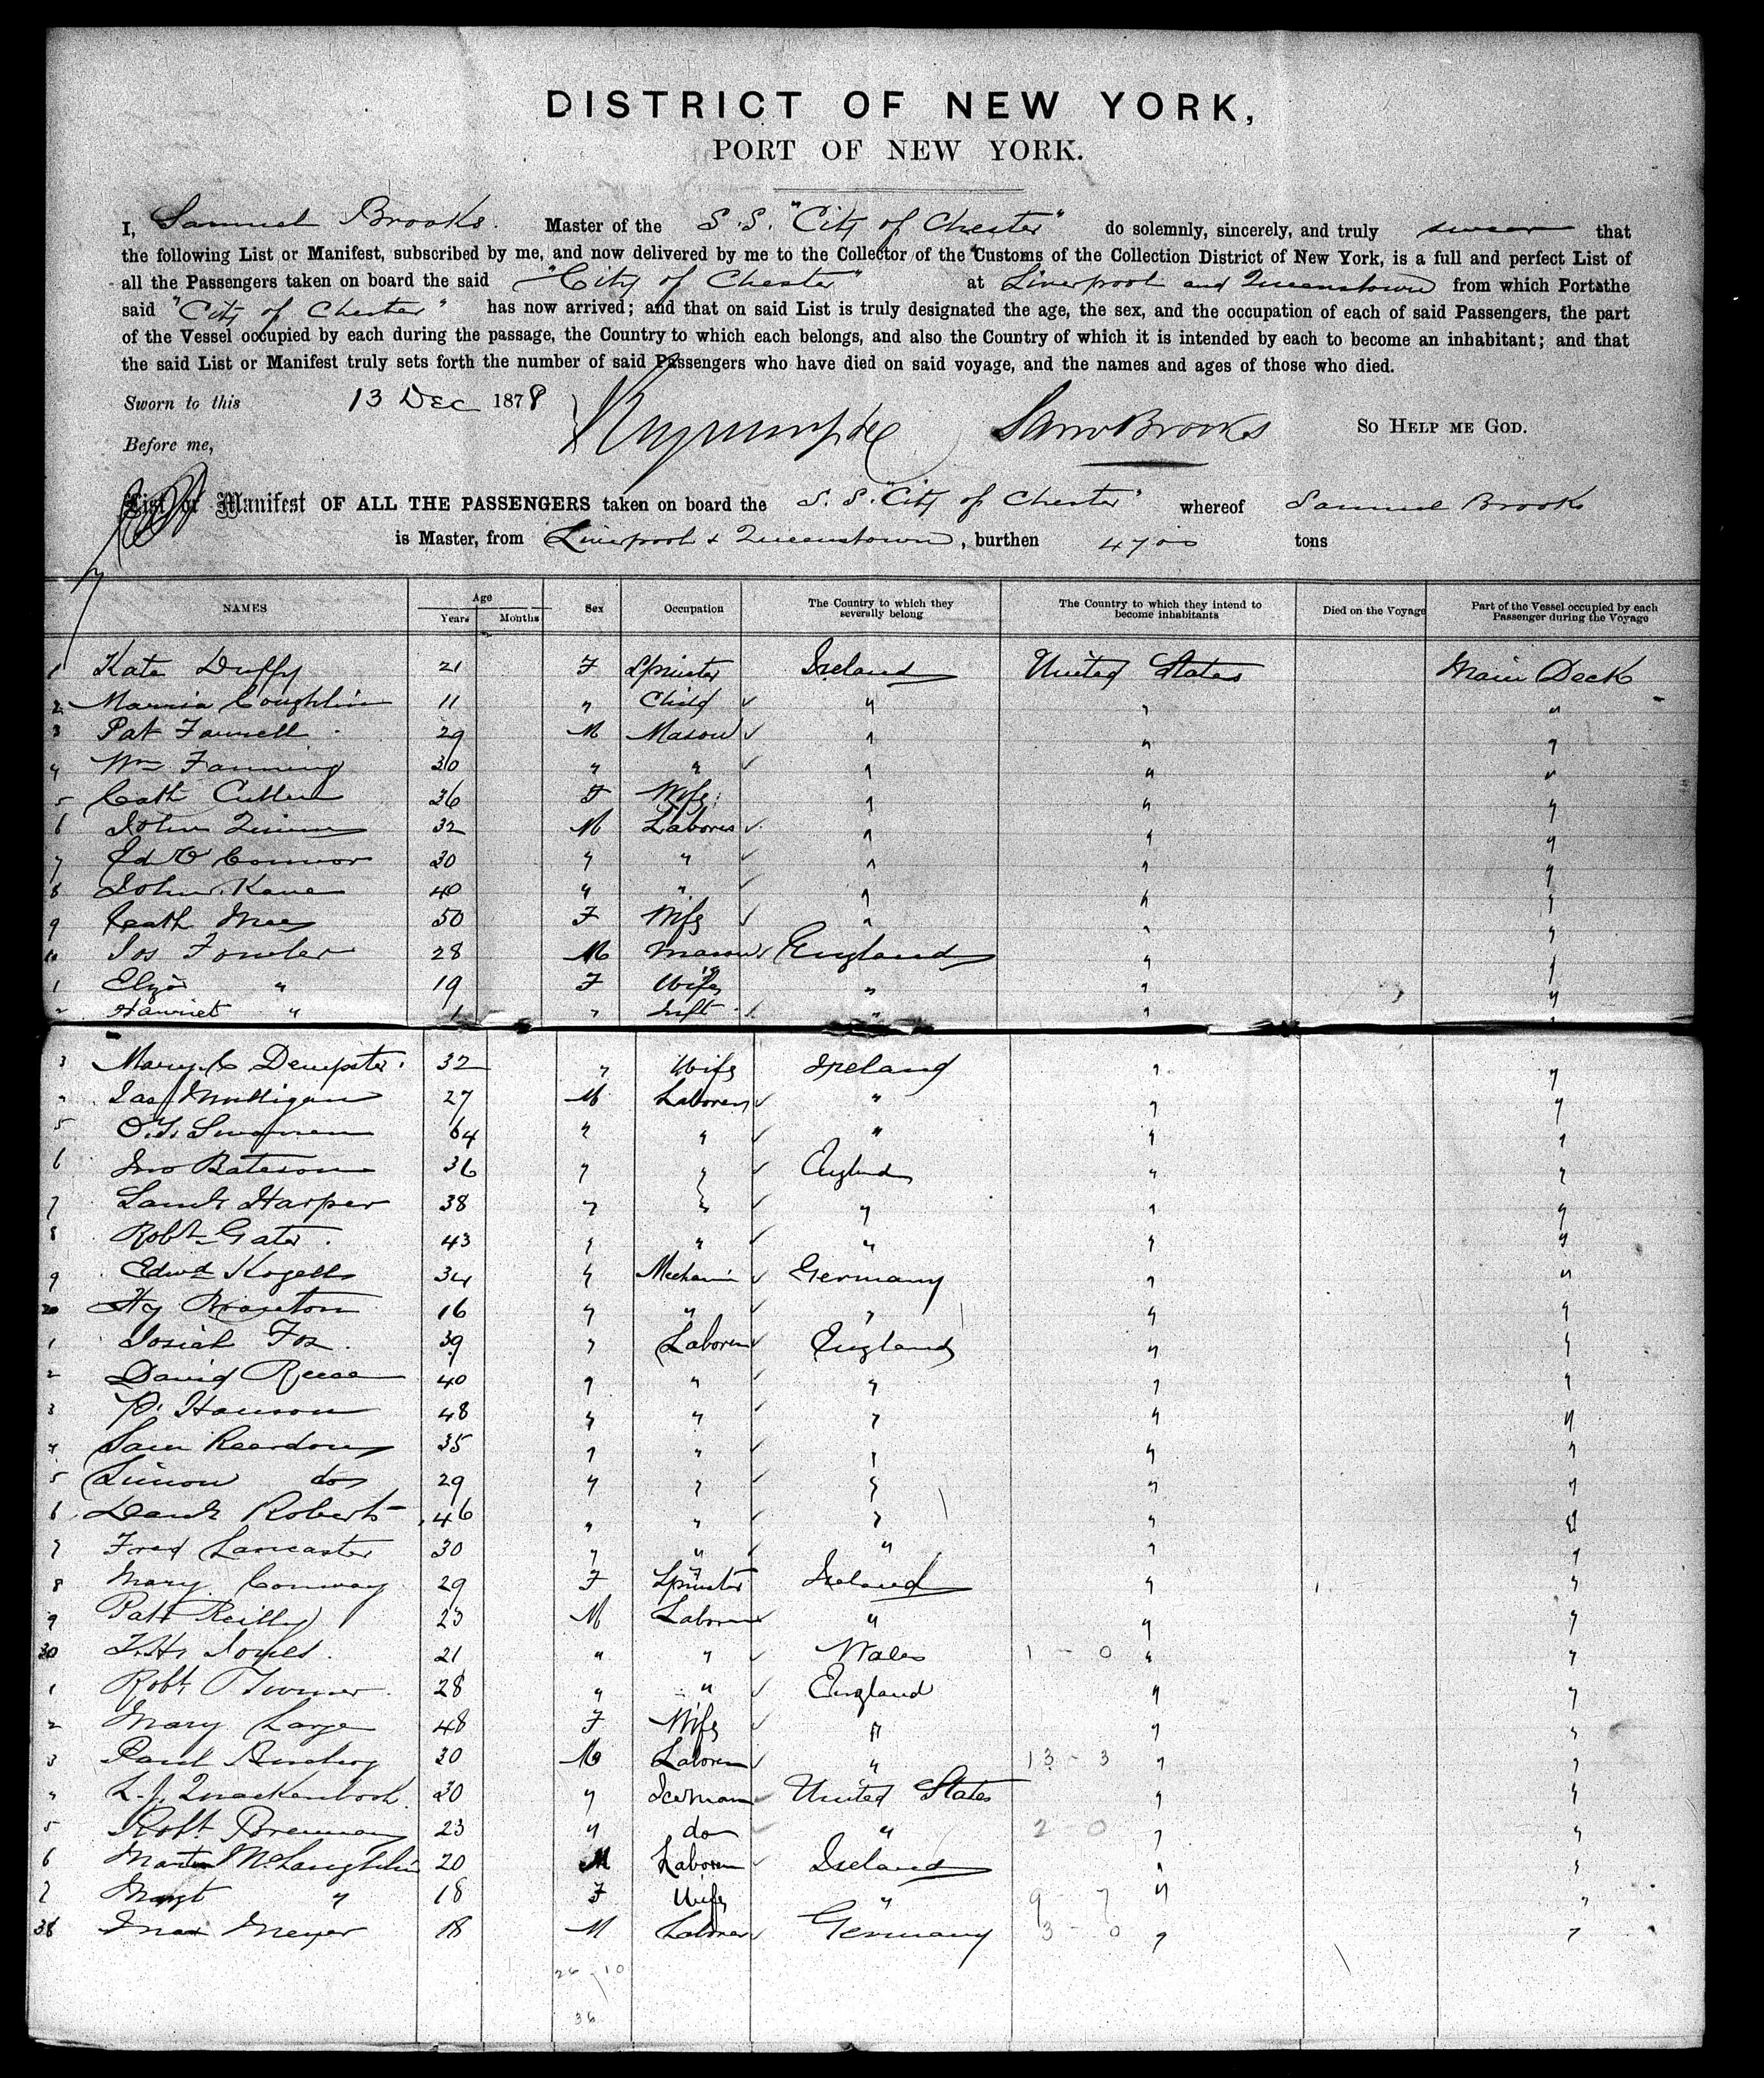 DISTRICT OF NEW YORK,
PORT OF NEW YORK.
I, Samuel Brooks. Master of the S.S. "City of Chester" do solemnly, sincerely, and truly swear that
the following List or Manifest, subscribed by me, and now delivered by me to the Collector of the Customs of the Collection District of New York, is a full and perfect List of
all the Passengers taken on board the said "City of Chester" at Liverpool and Queenstown from which Ports the
said "City of Chester" has now arrived; and that on said List is truly designated the age, the sex, and the occupation of each of said Passengers, the part
of the Vessel occupied by each during the passage, the Country to which each belongs, and also the Country of which it is intended by each to become an inhabitant; and that
the said List or Manifest truly sets forth the number of said Passengers who have died on said voyage, and the names and ages of those who died.
Sworn to this 13 Dec 1878
Saml Brooks SO HELP ME GOD.
Before me,
List or Manifest OF ALL THE PASSENGERS taken on board the S.S. "City of Chester" whereof Samuel Brooks
is Master, from Liverpool & Queenstown, burthen 4700 tons
NAMES Age Years Months Sex Occupation The Country to which they severally belong The Country to which they intend to become inhabitants Died on the Voyage Part of the Vessel occupied by each Passenger during the Voyage
1 Kate Duffy 21 F Spinster Ireland United States Main Deck
2 Marria Coughlin 11 " Child " " "
3 Pat Farrell 29 M Mason " " "
4 Wm Fanning 30 " " " " "
5 Cath Cullen 36 F Wife " " "
6 John Quinn 32 M Laborer " " "
7 Ed O'Connor 30 " " " " "
8 John Kane 40 " " " " "
9 Cath 50 F Wife " " "
10 Jos Fowler 28 M Mason England " "
1 Eliza " 19 F Wife " " "
2 Harriet " 1 " Inft " " "
3 Mary C Dempster 32 " Wife Ireland " "
4 Jas Mulligan 27 M Laborer " " "
5 64 " " " " "
6 Jno Bateson 36 " " England " "
7 Saml Harper 38 " " " " "
8 Robt Gater 43 " " " " "
9 Edwd 34 " Mechanic Germany " "
20 Hy 16 " " " " "
1 Josiah Fox 39 " Laborer England " "
2 David Reese 40 " " " " "
3 P. Hanson 48 " " " " "
4 Sam Reardon 35 " " " " "
5 Simon do 29 " " " " "
6 Danl Roberts 46 " " " " "
7 Fred Lancaster 30 " " " " "
8 Mary Conway 29 F Spinster Ireland " "
9 Patk Reilly 23 M Laborer " " "
30 T.H. Jones 21 " " Wales 1 - 0 " "
1 Robt Turner 28 " " England " "
2 Mary Large 48 F Wife " " "
3 Paul 30 M Laborer " 13 - 3 " "
4 L.J. Quackenbosh 30 " Iceman United States " "
5 Robt Brennan 23 " do " 2 - 0 " "
6 Martin McLaughlin 20 M Laborer Ireland " "
7 Margt " 18 F Wife " 9 - 7 " "
38 Max Meyer 18 M Laborer Germany 3 - 0 " "
26 - 10
36